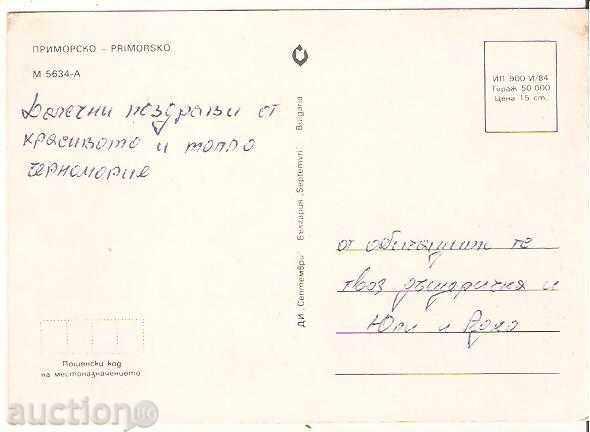 ПРИМОРСКО – PRIMORSKO
М 5634-А
ИП 900-И/84
Тираж 50 000
Цена 15 ст.
Далечни поздрави от
красивото и топло
черноморие
ДИ „Септември" България „Septemvri" Bulgaria
от обичащите те
твоя дъщеричка и
Юли и
Пощенски код
на местоназначението
auction BG